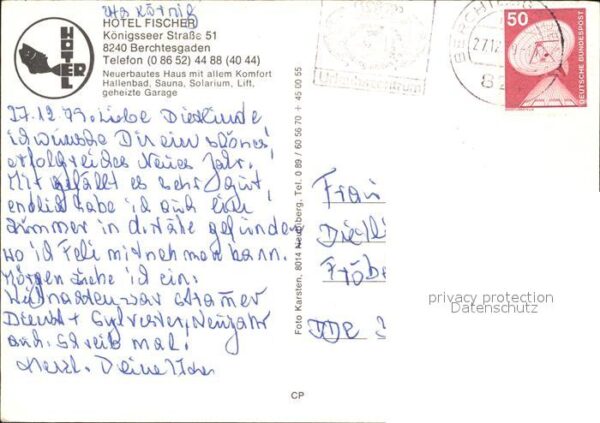 HOTEL FISCHER
Königsseer Straße 51
8240 Berchtesgaden
Telefon (0 86 52) 44 88 (40 44)
Neuerbautes Haus mit allem Komfort
Hallenbad, Sauna, Solarium, Lift,
geheizte Garage
HOTEL
27.12.79. Liebe Dietlinde
ich wünsche Dir ein schönes,
erfolgreiches Neues Jahr.
Mir gefällt es sehr gut,
endlich habe ich auch
Zimmer in d. Nähe gefunden
wo ich Feli mitnehmen kann.
Morgen ziehe ich ein.
Weihnachten war strammer
Dienst + Sylvester, Neujahr
auch. Schreib mal.
Herzl. Deine
Foto Karsten, 8014 Neubiberg, Tel. 0 89 / 60 56 70 + 45 00 55
CP
50
DEUTSCHE BUNDESPOST
BERCHTESG
27.12
82
Frau
Dietli
Fröbe
DDR
privacy protection
Datenschutz